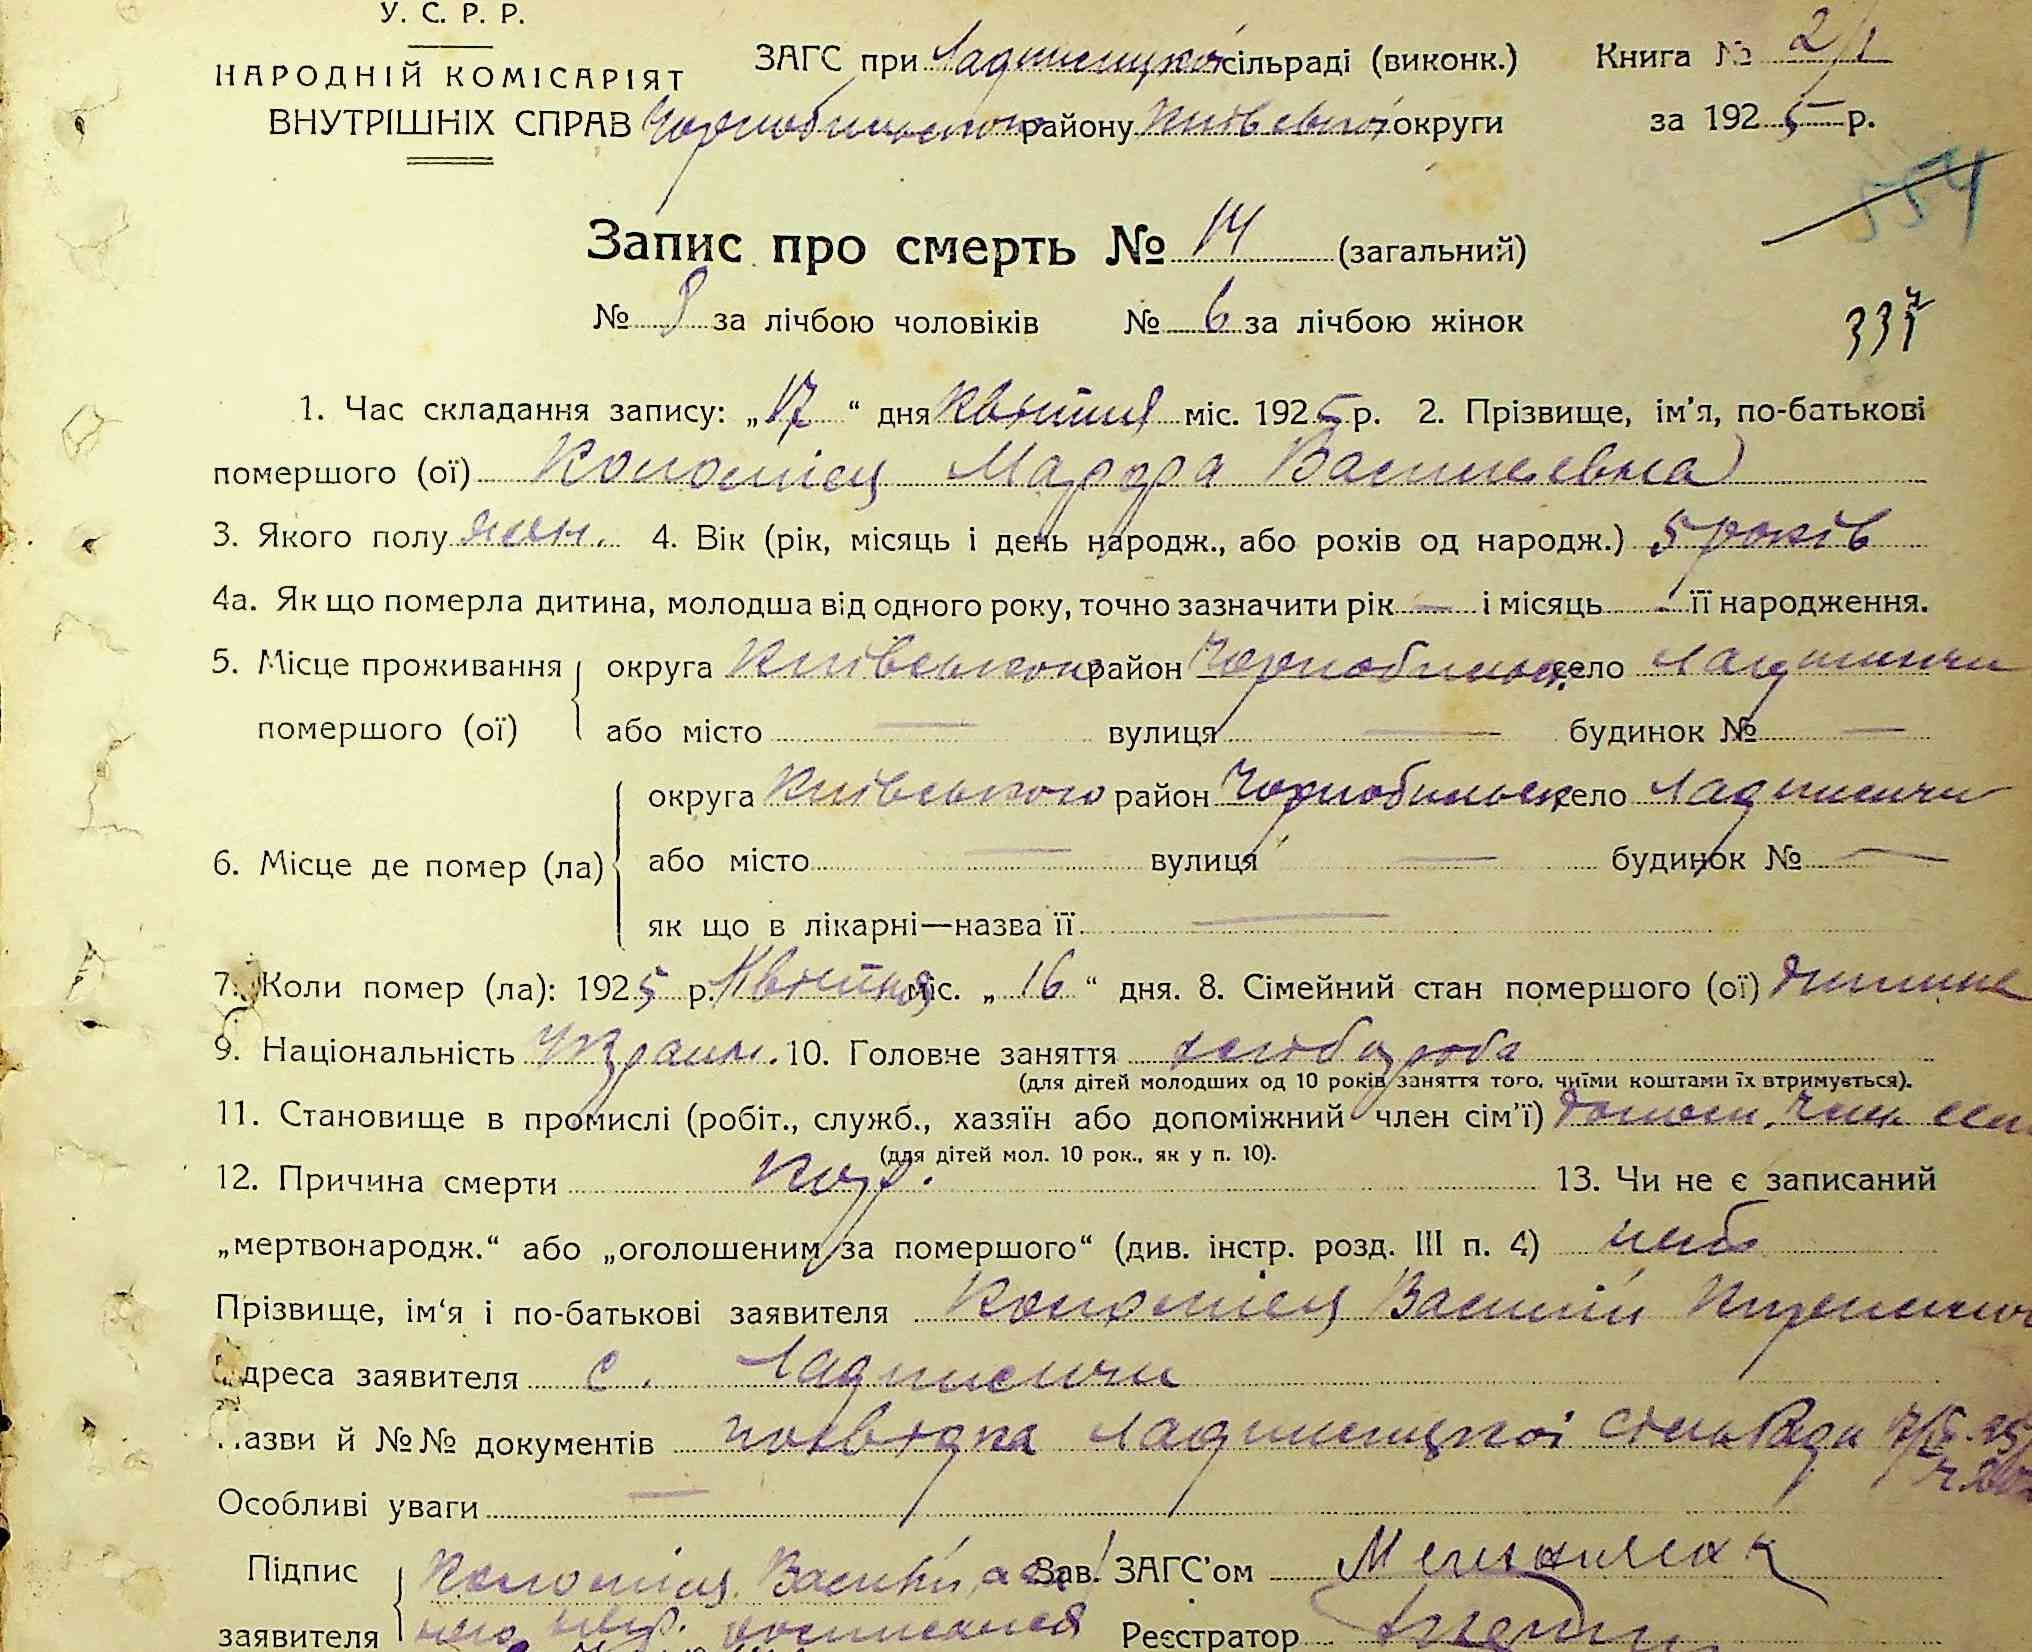 У. С. Р. Р.
НАРОДНІЙ КОМІСАРІЯТ
ВНУТРІШНІХ СПРАВ
ЗАГС при Ладижицкої сільраді (виконк.)
Чорнобильського району Київської округи
Книга № 2/1
за 1925 р.
554
337
Запис про смерть № 14 (загальний)
№ 8 за лічбою чоловіків № 6 за лічбою жінок
1. Час складання запису: „17“ дня Квітня міс. 1925 р. 2. Прізвище, ім'я, по-батькові
помершого (ої) Коломієц Марфа Василевна
3. Якого полу жен. 4. Вік (рік, місяць і день народж., або років од народж.) 5 років
4а. Як що померла дитина, молодша від одного року, точно зазначити рік — і місяць — її народження.
5. Місце проживання округа Київського район Чорнобильск. село Ладижичи
помершого (ої) або місто — вулиця — будинок № —
округа Київського район Чорнобильск село Ладижичи
6. Місце де помер (ла) або місто — вулиця — будинок № —
як що в лікарні—назва її —
7. Коли помер (ла): 1925 р. Квітня міс. „16“ дня. 8. Сімейний стан помершого (ої) дитина
9. Національність Україн. 10. Головне заняття хлібороба
(для дітей молодших од 10 років заняття того, чиїми коштами їх втримується).
11. Становище в промислі (робіт., служб., хазяїн або допоміжний член сім'ї) допом. член сем
(для дітей мол. 10 рок., як у п. 10).
12. Причина смерти Кор. 13. Чи не є записаний
„мертвонародж.“ або „оголошеним за помершого“ (див. інстр. розд. III п. 4)
Прізвище, ім'я і по-батькові заявителя Коломієц Василій
Адреса заявителя с. Ладижичи
Назви й №№ документів посвідка Ладижицкої сільРади 17/IV-25
Особливі уваги —
Підпис Коломієц Василій, а за Зав. ЗАГС'ом
заявителя него росписался Реєстратор